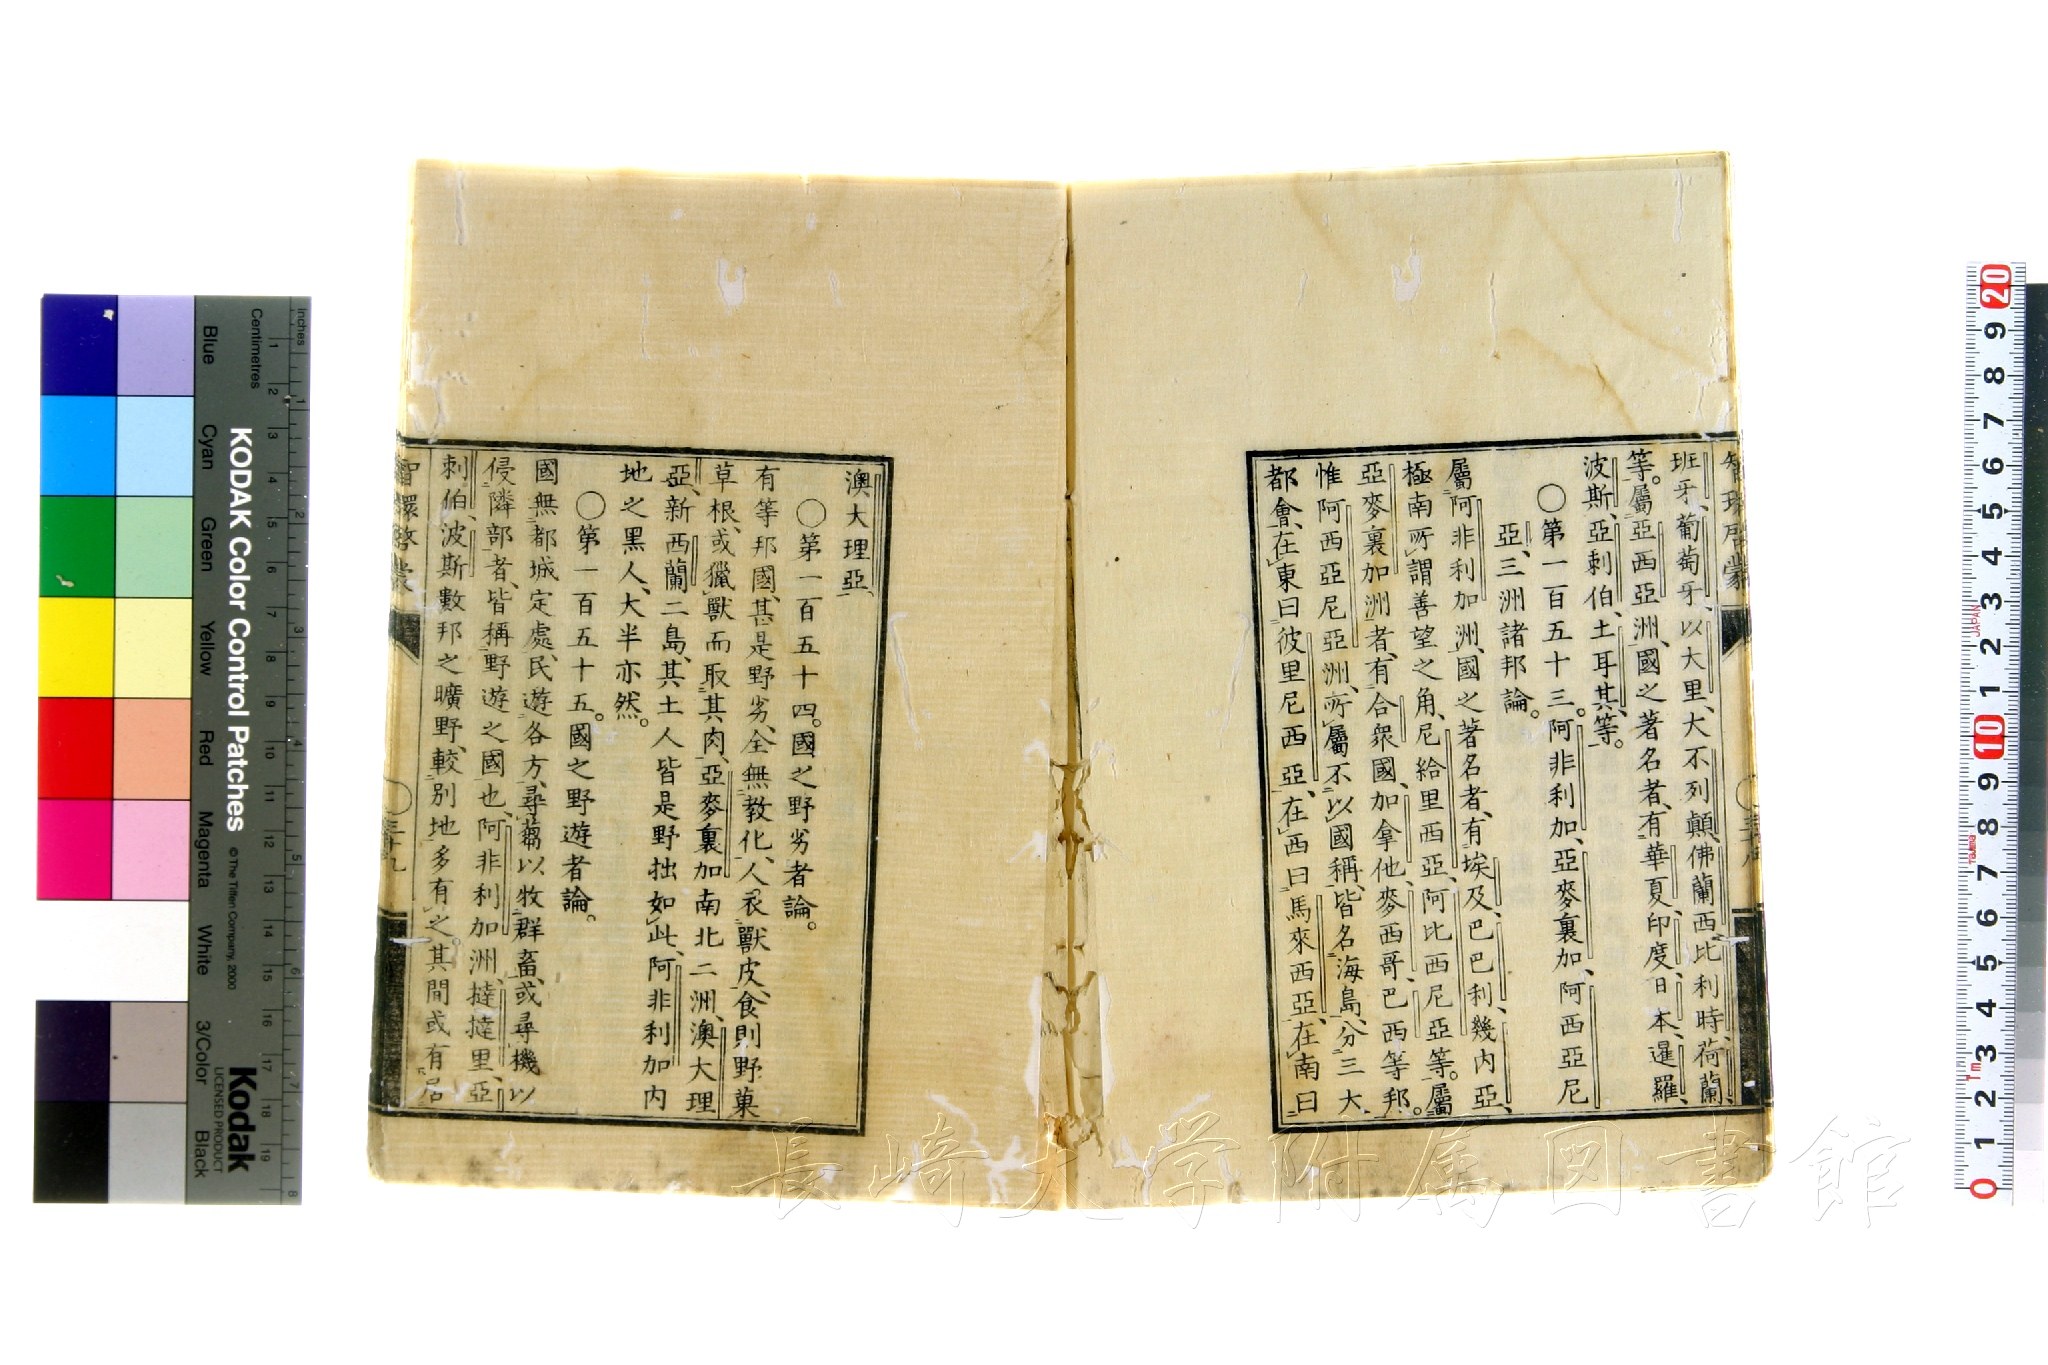 智環啓蒙
班牙、葡萄牙、以大里、大不列顛、佛蘭西比利時、荷蘭、
等。屬亞西亞洲、國之著名者、有華夏、印度、日本、暹羅、
波斯、亞剌伯、土耳其、等。
〇第一百五十三。阿非利加、亞麥裏加、阿西亞尼
亞、三洲諸邦論。
屬阿非利加洲、國之著名者、有埃及、巴巴利、幾内亞、
極南所謂善望之角、尼給里西亞、阿比西尼亞等。屬
亞麥裏加洲者、有合衆國、加拿他、麥西哥、巴西等邦。
惟阿西亞尼亞洲、所屬不以國稱、皆名海島、分三大
都會、在東曰彼里尼西亞、在西曰馬來西亞、在南曰
澳大理亞、
〇第一百五十四。國之野劣者論。
有等邦國、甚是野劣、全無教化、人衣獸皮、食則野菓
草根、或獵獸而取其肉、亞麥裏加南北二洲、澳大理
亞、新西蘭二島、其土人皆是野拙如此、阿非利加内
地之黑人、大半亦然。
〇第一百五十五。國之野遊者論。
國無都城定處、民遊各方、尋蒭以牧群畜、或尋機以
侵隣部者、皆稱野遊之國也、阿非利加洲、撻撻里、亞
剌伯、波斯數邦之曠野、較別地多有之。其間或有居
智環啓蒙
三十九
KODAK Color Control Patches
© The Tiffen Company, 2000
Kodak
LICENSED PRODUCT
inches
Centimetres
Blue Cyan Green Yellow Red Magenta White 3/Color Black
1 2 3 4 5 6 7 8 9 10 11 12 13 14 15 16 17 18 19
1 2 3 4 5 6 7 8
20 9 8 7 6 5 4 3 2 1 10 9 8 7 6 5 4 3 2 1 0
JAPAN
長崎大学附属図書館